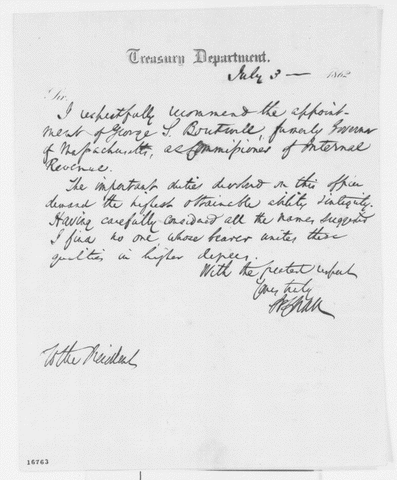 Treasury Department.
July 3 — 1862
Sir,
I respectfully recommend the appoint-
ment of George S. Boutwell, formerly Governor
of Massachusetts, as Commissioner of Internal
Revenue.
The important duties devolved on this officer
demand the highest obtainable ability & integrity.
Having carefully considered all the names suggested
I find no one whose bearer unites these
qualities in higher degrees.
With the greatest respect
Yours truly
SPChase
To the President
16763